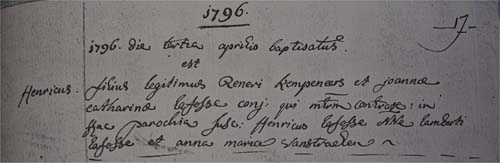 1796.
17
1796. die tertia aprilis baptisatus
est
Henricus.
filius legitimus Reneri Kempeneers et joannæ
catharinæ lafosse conj: qui mtm contrax: in
hac parochia susc: Henricus lafosse nne lamberti
lafosse et anna maria vanstraelen